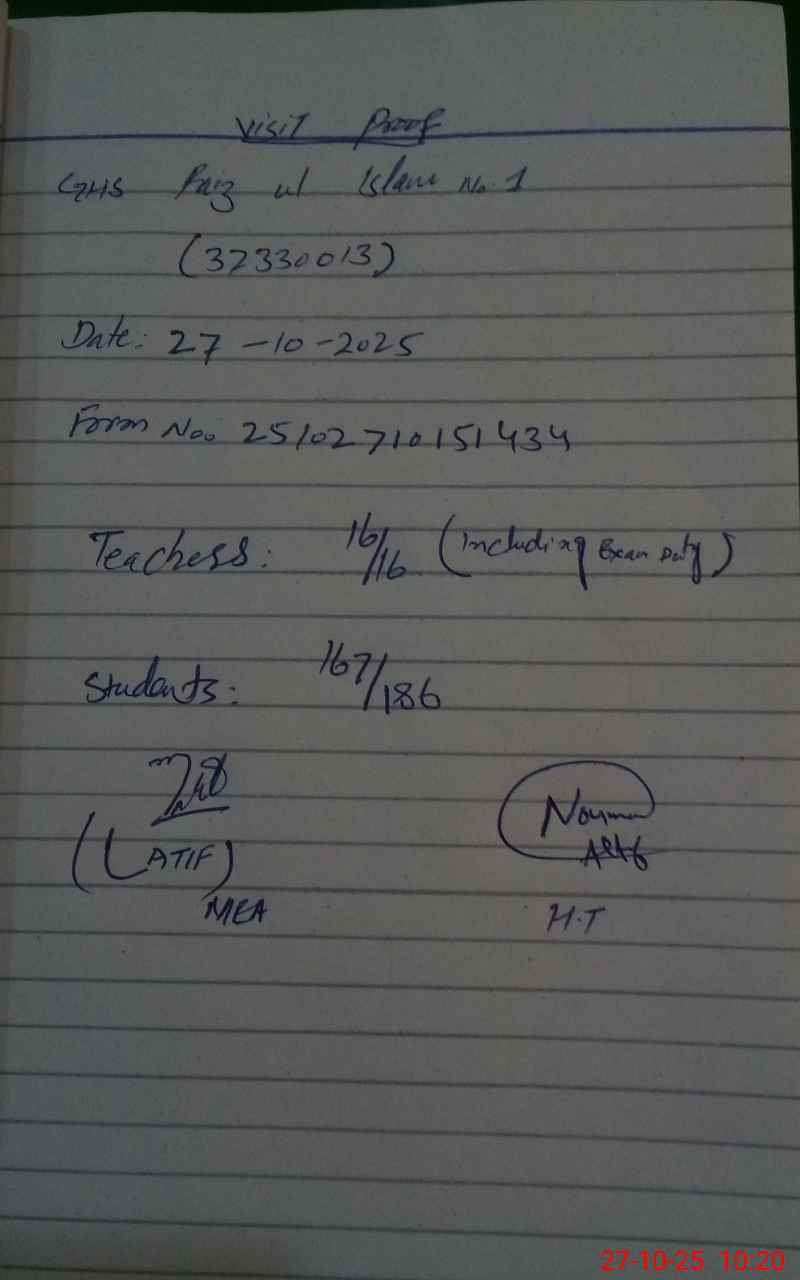 Visit Proof
GHS Faiz ul Islam No. 1
(37330013)
Date: 27-10-2025
Form No. 25102710151434
Teachers: 16/16 (Including Exam Duty)
Students: 167/186
(LATIF)
MEA
Nouman
H.T
27-10-25 10:20